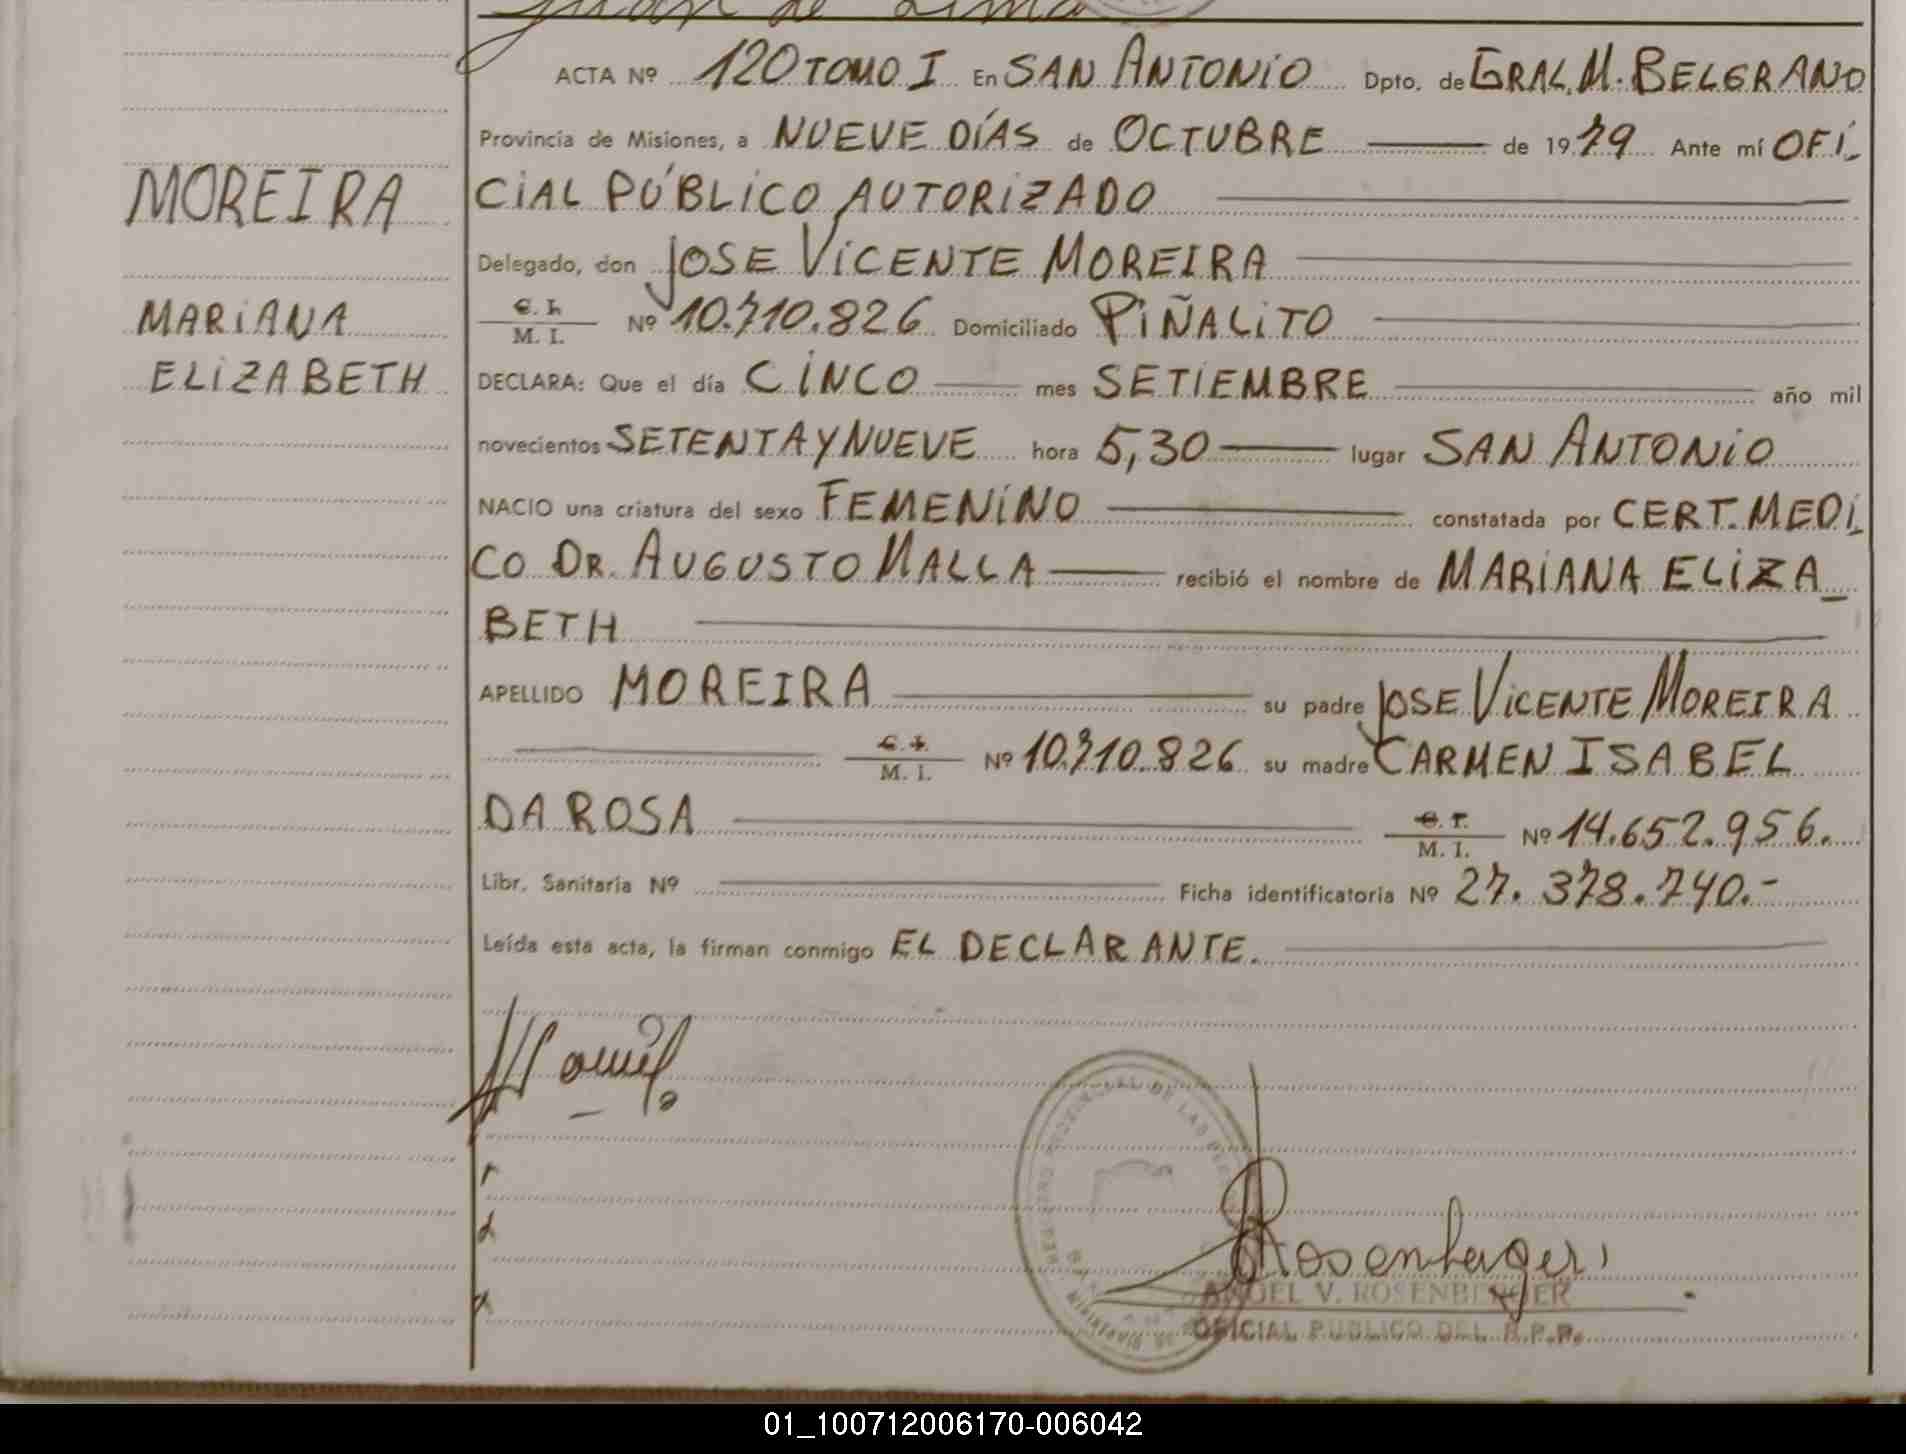 Juan de Lima
ACTA Nº 120 TOMO I En SAN ANTONIO Dpto. de GRAL. M. BELGRANO
Provincia de Misiones, a NUEVE DÍAS de OCTUBRE de 1979 Ante mí OFI-
MOREIRA
CIAL PÚBLICO AUTORIZADO
Delegado, don JOSE VICENTE MOREIRA
MARIANA
C. I.
M. I. Nº 10.710.826 Domiciliado PIÑALITO
ELIZABETH
DECLARA: Que el día CINCO mes SETIEMBRE año mil
novecientos SETENTA Y NUEVE hora 5,30 lugar SAN ANTONIO
NACIO una criatura del sexo FEMENINO constatada por CERT. MEDI-
CO DR. AUGUSTO MALLA recibió el nombre de MARIANA ELIZA_
BETH
APELLIDO MOREIRA su padre JOSE VICENTE MOREIRA
C. I.
M. I. Nº 10.710.826 su madre CARMEN ISABEL
DA ROSA C. I.
M. I. Nº 14.652.956.
Libr. Sanitaria Nº Ficha identificatoria Nº 27.378.740.-
Leída esta acta, la firman conmigo EL DECLARANTE.
Rosenberger
ANGEL V. ROSENBERGER
OFICIAL PUBLICO DEL R.P.P.
01_100712006170-006042